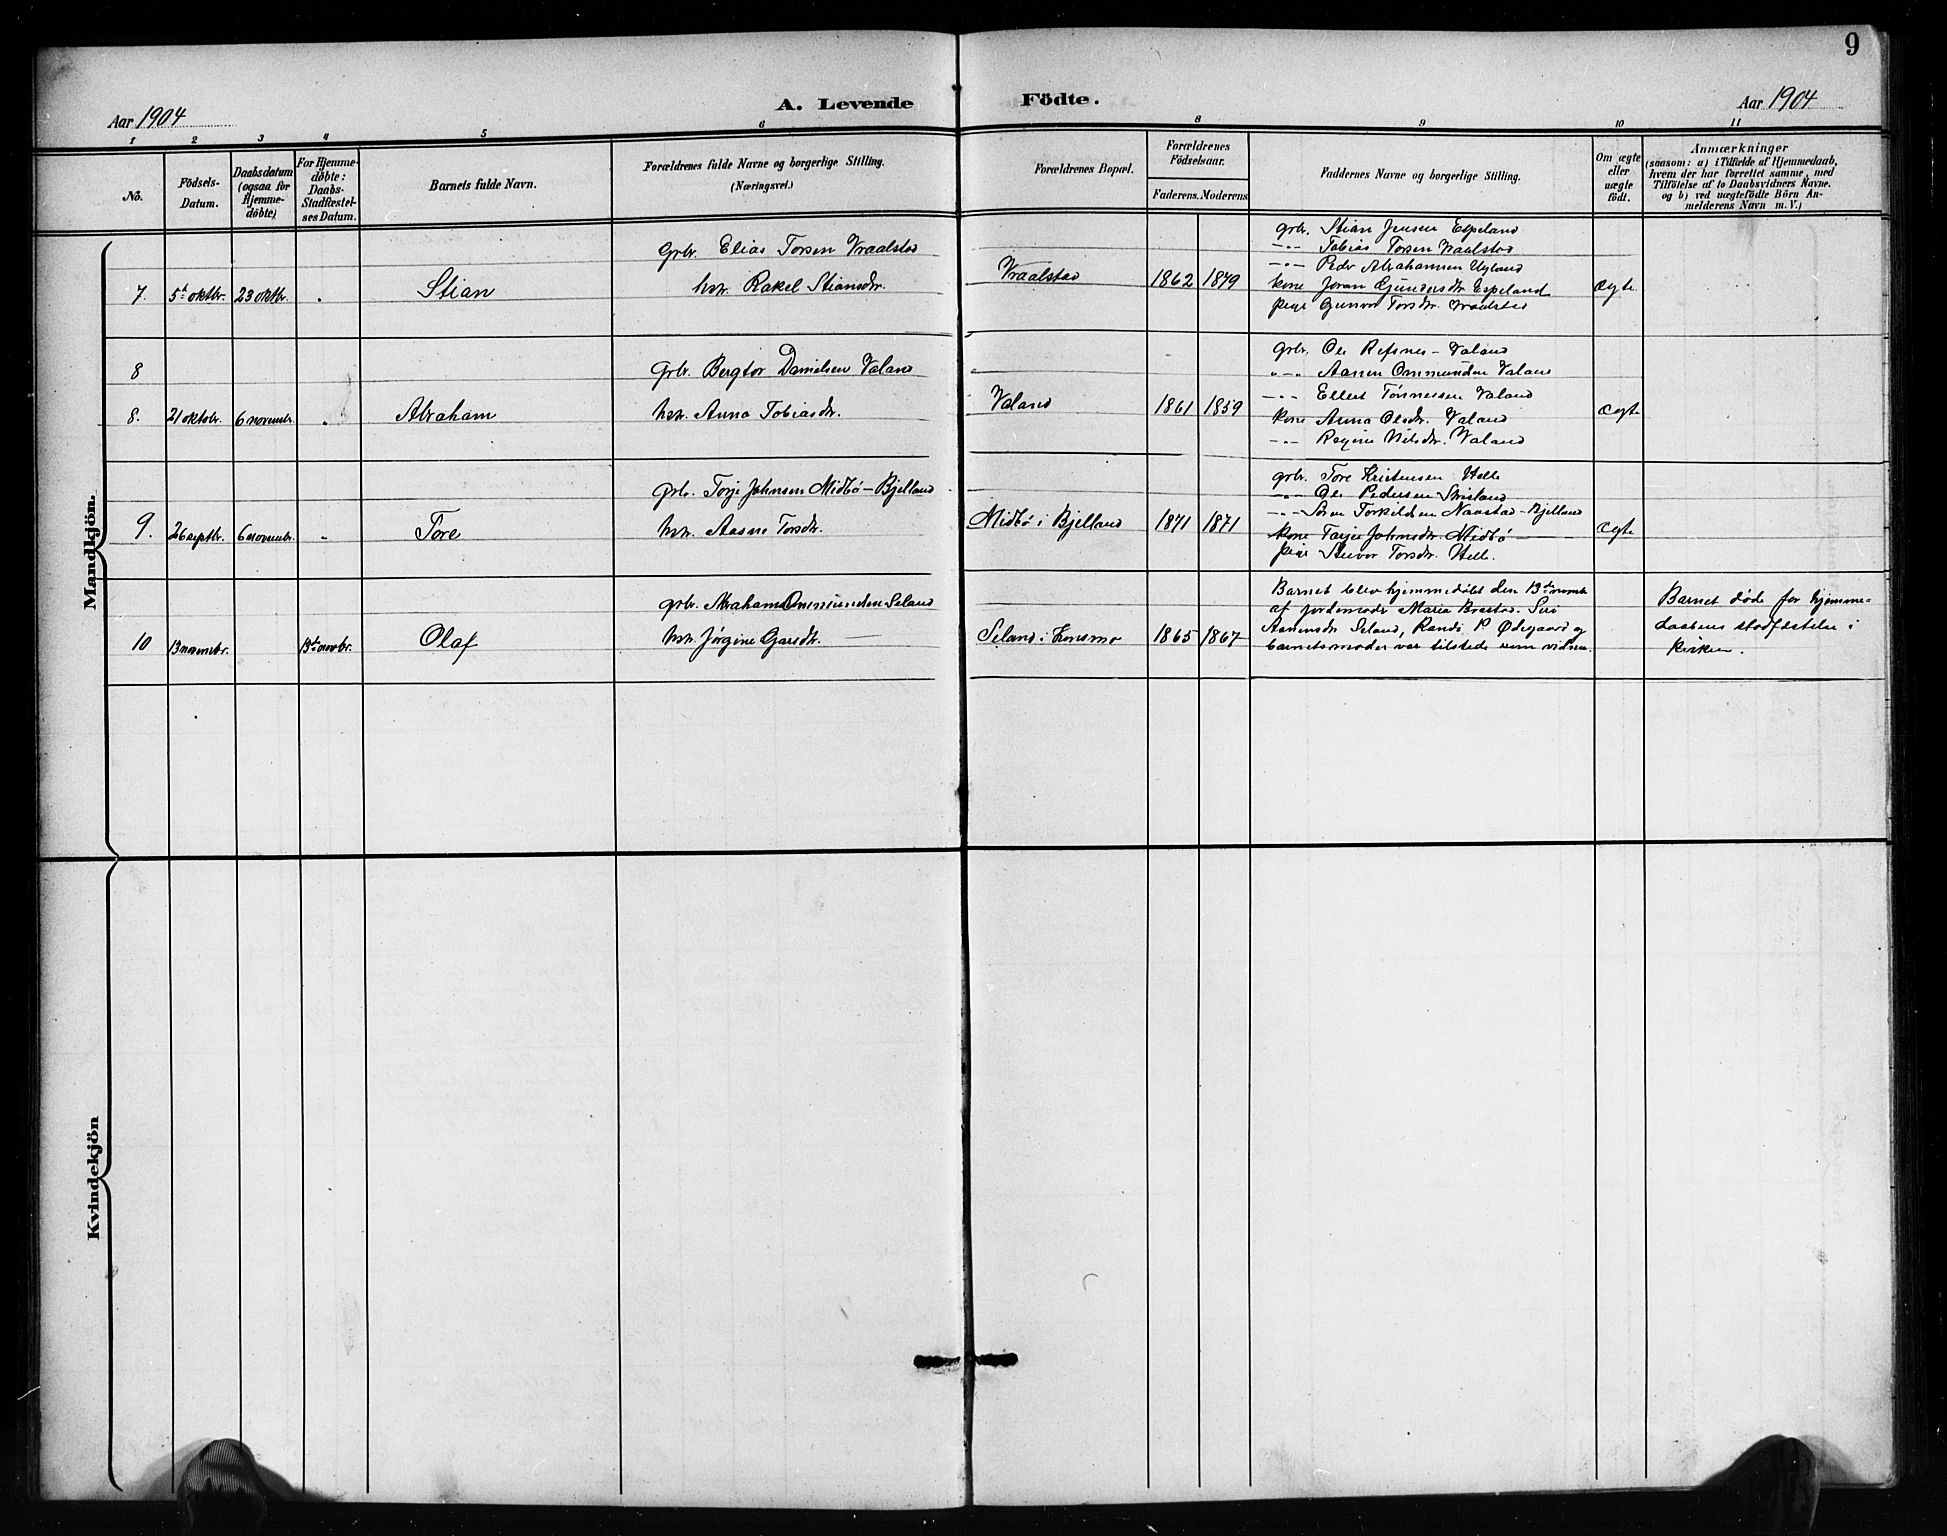 9
Aar 1904
A. Levende Födte.
Aar 1904
1 2 3 4 5 6 8 9 10 11
No.
Födsels-
Datum.
Daabsdatum
(ogsaa for
Hjemme-
döbte)
For Hjemme-
döbte:
Daabs-
Stadfæstel-
ses Datum.
Barnets fulde Navn.
Forældrenes fulde Navne og borgerlige Stilling.
(Næringsvei.)
Forældrenes Bopæl.
Forældrenes
Födselsaar.
Faderens. Moderens
Faddernes Navne og borgerlige Stilling.
Om ægte
eller
uægte
födt.
Anmærkninger
(saasom: a) i Tilfælde af Hjemmedaab,
hvem der har forrettet samme, med
Tilföielse af to Daabsvidners Navne.
og b) ved uægtefödte Börn An-
melderens Navn m. V.)
Mandkjön.
7. 5te oktbr. 23 oktbr. Stian
grbr. Elias Torsen Vraalstad
hstr. Rakel Stiansdtr.
Vraalstad 1862 1879
grbr. Stian Jensen Espeland
—"— Tobias Torsen Vraalstad
—"— Peder Abrahamsen Uyland
kone Joran Gundersdtr Espeland
pige Gunvor Torsdtr. Vraalstad
ægte
8
8. 21 oktobr. 6 novembr. Abraham
grbr. Bergtor Danielsen Valand
hstr. Anna Tobiasdtr.
Valand 1861 1859
grbr. Ole Refsnes - Valand
—"— Aanen Ommundsen Valand
—"— Ellert Tönnessen Valand
kone Anna Olsdtr. Valand
—"— Regine Nilsdtr. Valand
ægte
9. 26 septbr. 6 novembr. Tore
grbr. Torje Johnsen Midbö - Bjelland
hstr. Aasne Torsdtr.
Midbö i Bjelland 1871 1871
grbr. Tore Kristensen Helle
—"— Ole Pedersen
—"— Torkildsen Navstad - Bjelland
kone Johnsdtr. Midbö
pige Torsdtr. Helle.
ægte
10 13 novembr. 13de novbr. Olaf
grbr. Abraham Ommundsen Seland
hstr. Jørgine Gursdtr. —
Seland i Finsmo 1865 1867
Barnet blev hjemmedøbt den 13de novembr.
af jordemoder Maria . Siri
Aanensdtr Seland, Randi P. Ødegaard og
barnets moder var tilstede som vidner.
Barnet døde før hjemme-
daabens stadfæstelse i
kirken.
Kvindekjön